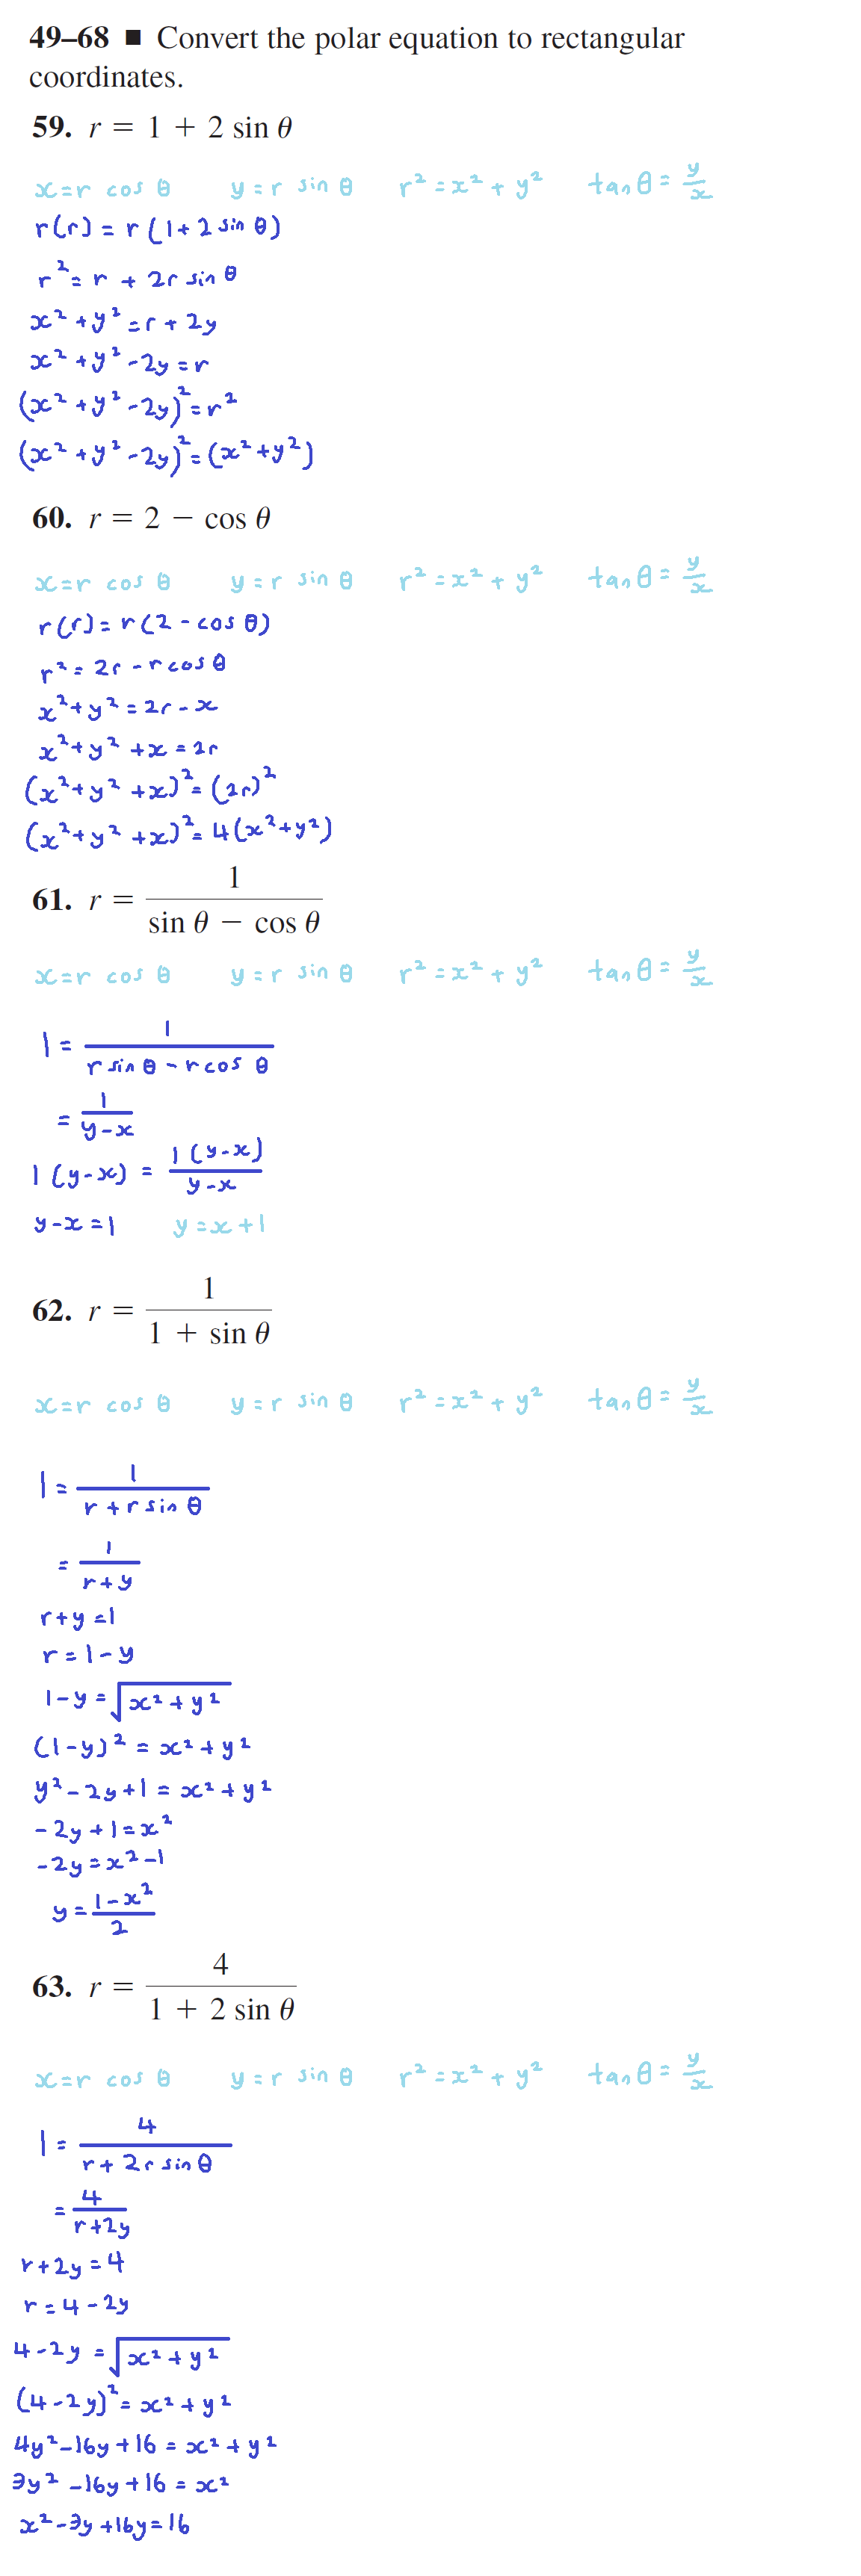 49–68 ■ Convert the polar equation to rectangular
coordinates.
59. r = 1 + 2 sin θ
x = r cos θ y = r sin θ r² = x² + y² tan θ = y/x
r(r) = r(1 + 2 sin θ)
r² = r + 2r sin θ
x² + y² = r + 2y
x² + y² - 2y = r
(x² + y² - 2y)² = r²
(x² + y² - 2y)² = (x² + y²)
60. r = 2 − cos θ
x = r cos θ y = r sin θ r² = x² + y² tan θ = y/x
r(r) = r(2 - cos θ)
r² = 2r - r cos θ
x² + y² = 2r - x
x² + y² + x = 2r
(x² + y² + x)² = (2r)²
(x² + y² + x)² = 4(x² + y²)
61. r = 1/(sin θ − cos θ)
x = r cos θ y = r sin θ r² = x² + y² tan θ = y/x
1 = 1/(r sin θ - r cos θ)
= 1/(y - x)
1(y - x) = 1(y - x)/(y - x)
y - x = 1 y = x + 1
62. r = 1/(1 + sin θ)
x = r cos θ y = r sin θ r² = x² + y² tan θ = y/x
1 = 1/(r + r sin θ)
= 1/(r + y)
r + y = 1
r = 1 - y
1 - y = √(x² + y²)
(1 - y)² = x² + y²
y² - 2y + 1 = x² + y²
-2y + 1 = x²
-2y = x² - 1
y = (1 - x²)/2
63. r = 4/(1 + 2 sin θ)
x = r cos θ y = r sin θ r² = x² + y² tan θ = y/x
1 = 4/(r + 2r sin θ)
= 4/(r + 2y)
r + 2y = 4
r = 4 - 2y
4 - 2y = √(x² + y²)
(4 - 2y)² = x² + y²
4y² - 16y + 16 = x² + y²
3y² - 16y + 16 = x²
x² - 3y + 16y = 16